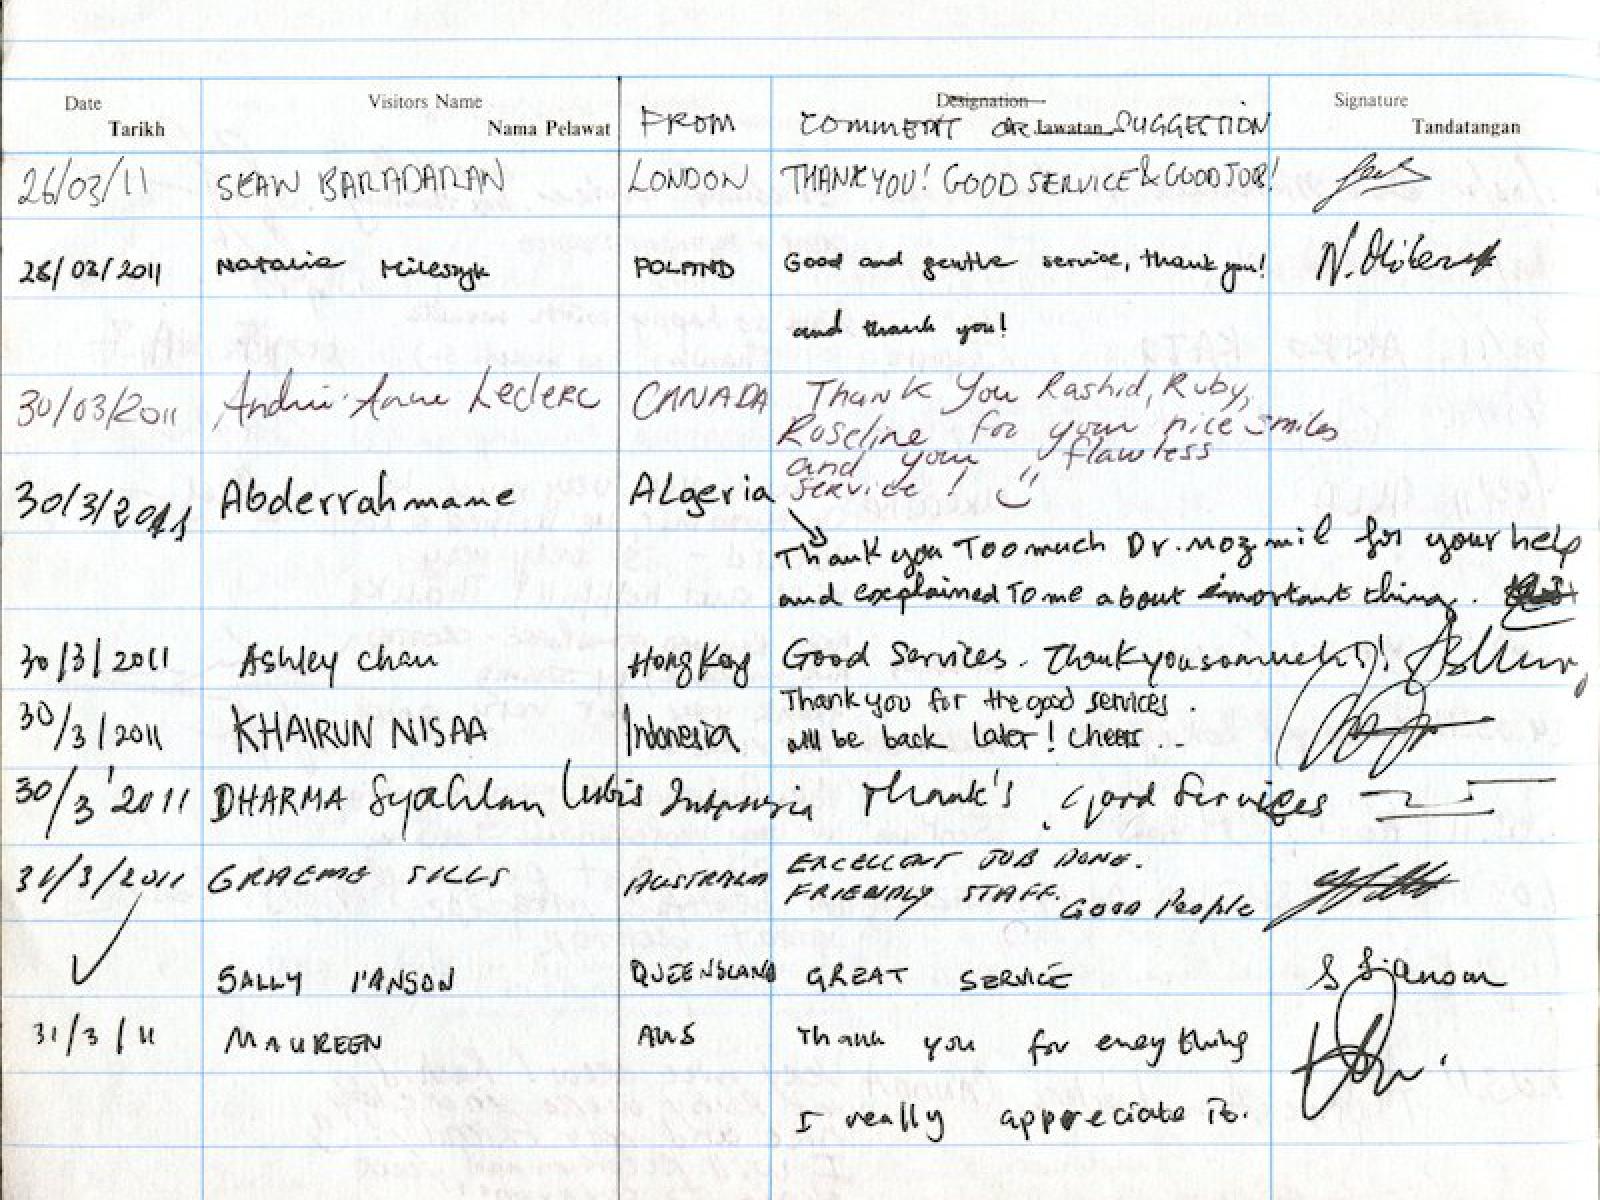 Date Visitors Name Designation Signature
Tarikh Nama Pelawat FROM COMMENT OR Jawatan SUGGESTION Tandatangan
26/03/11 SEAN BARADARAN LONDON THANK YOU! GOOD SERVICE & GOOD JOB!
28/03/2011 Natalia POLAND Good and gentle service, thank you!
and thank you!
30/03/2011 Leclerc CANADA Thank You Rashid, Ruby,
Roseline for your nice smiles
and your flawless
service!
30/3/2011 Abderrahmame ALgeria
Thank you Too much Dr. mozmil for your help
and explained To me about important thing.
30/3/2011 Ashley Chan Hong Kong Good Services. Thank you so much!
30/3/2011 KHAIRUN NISAA Indonesia Thank you for the good services.
will be back later! Cheers...
30/3'2011 DHARMA Syahlan Lubis Indonesia Thank's Good Services
31/3/2011 GRAEME SILLS AUSTRALIA EXCELLENT JOB DONE.
FRIENDLY STAFF. GOOD People
SALLY I'ANSON QUEENSLAND GREAT SERVICE S I'anson
31/3/11 MAUREEN AUS Thank you for evey thing
I really appreciate it.